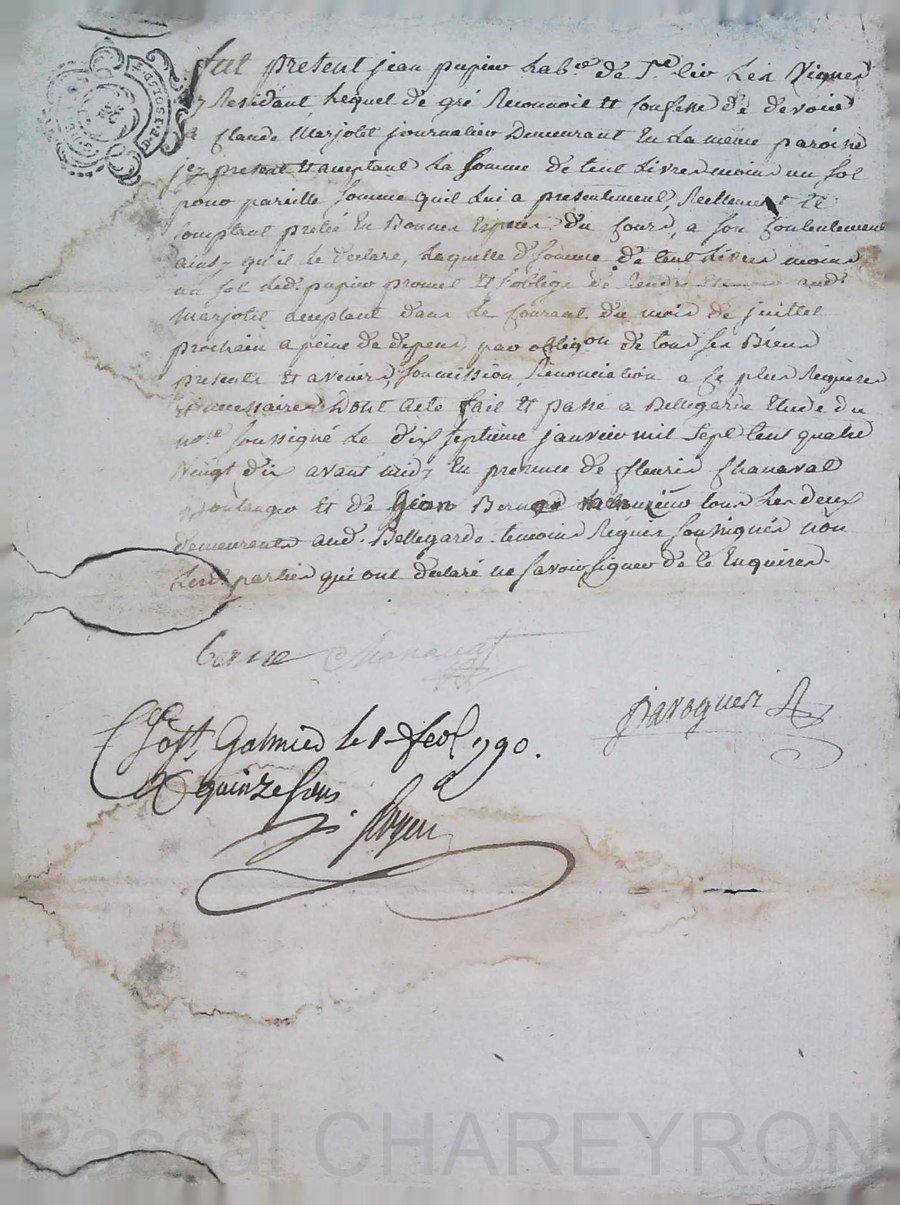 fut présent jean pupier Lab.r de S.t Cir Les Vignes
y Residant Lequel de gré Reconnoit Et Confesse de devoir
a Claude Marjolet journalier Demeurant En La même paroisse
icy présent Et acceptant La somme de Cent Livres moins un sol
pour pareille somme quil Lui a présentement, Reellement Et
Comptant prêté En Bonnes Especes Du Cours, a son Contentement
ainsy qu'il Le declare, Laquelle d. somme de Cent Livres moins
un sol Led. pupier promet Et s'oblige de Rendre aud.
Marjolet acceptant dans Le Courant du mois de juillet
prochain a peine de depens, par oblig.on de tous ses Biens
presents Et avenirs, soumission, Renonciation a Ce plus Requises
Et necessaires Dont Acte fait Et passé a Bellegarde Etude du
no.re soussigné Le dix septieme janvier mil sept Cent quatre
Vingt dix avant midy En presence de fleurie Chanavat
Boulanger Et de tous Les deux
demeurants aud. Bellegarde temoins Requis soussignés non
Lesd. parties qui ont declaré ne savoir signer de Ce Enquises.
Chanavat
Galmier le 1 fev. 1790.
quinze sous
Pascal CHAREYRON